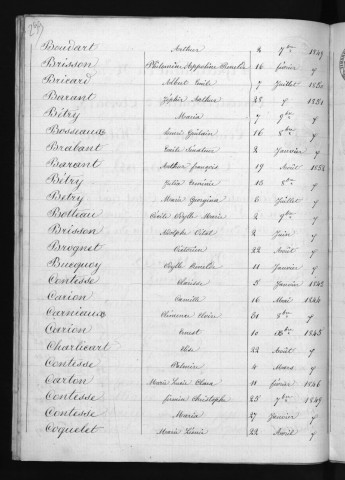 Boudart Arthur 2 7bre 1849
Brisson Philomène Appoline Amélie 16 février 7
Bricard Albert Emile 7 Juillet 1850
Barant Zéphir Arthur 28 7 1851
Bétry Maria 7 9bre 7
Bosseaux Ghislain 16 8bre 7
Brabant Emile 2 Janvier 7
Barant Arthur françois 19 Août 1852
Bétry Julia 13 8bre 7
Betry Marie Georgina 6 Juillet 7
Botteau Cécile Marie 2 9bre 7
Brisson Adolphe 2 Juin 7
Brognet Victorien 22 Août 7
Bucquoy Amélie 11 Janvier 7
Contesse Clarisse 5 Janvier 1842
Carion Camille 16 Mai 1844
Carniaux Clémence 21 8bre 7
Carion Ernest 10 Xbre 1845
Charlicart Elise 22 Août 7
Contesse 4 Mars 7
Carlon Marie Lucie Clara 11 février 1846
Contesse firmin Christophe 25 7bre 1849
Contesse Maria 27 Janvier 7
Coquelet Marie 22 Août 7